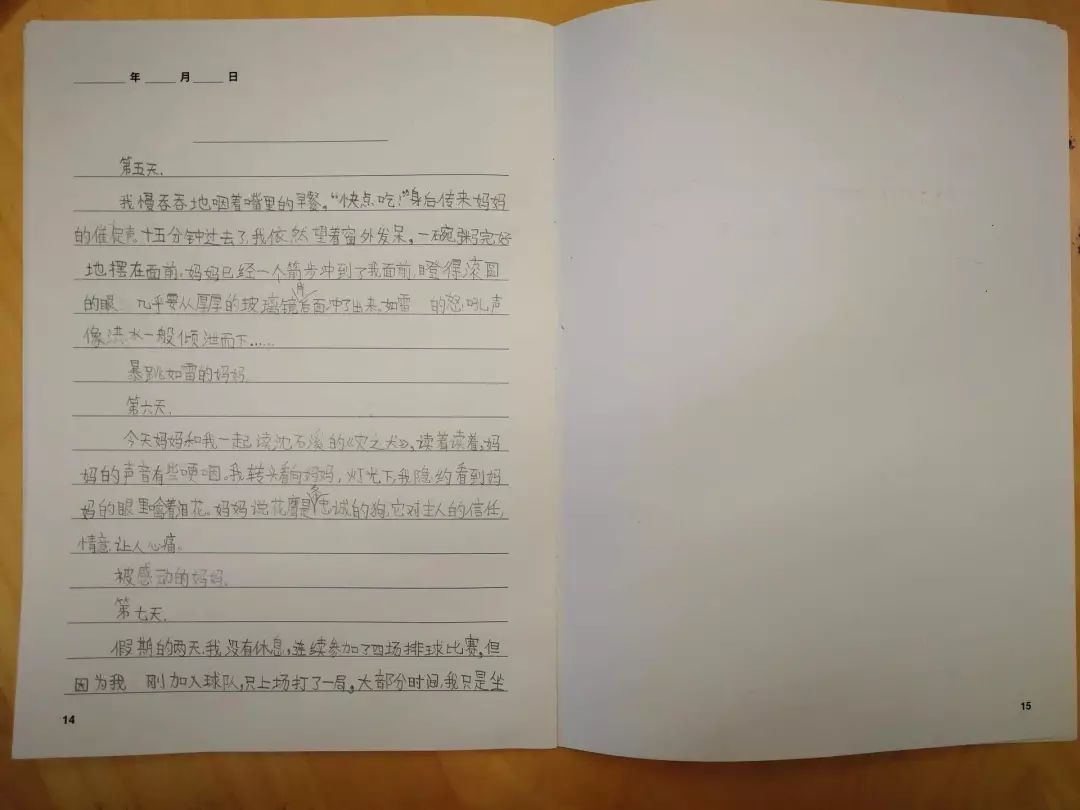 年 月 日
第五天.
我慢吞吞地咽着嘴里的早餐。“快点吃!”身后传来妈妈
的催促声 十五分钟过去了,我依然望着窗外发呆。一碗粥完好
地摆在面前.妈妈已经一个箭步冲到了我面前.瞪得滚圆
的眼 几乎要从厚厚的玻璃镜片后面冲了出来.如雷 的怒吼声
像洪水一般倾泄而下……
暴跳如雷的妈妈.
第六天.
今天妈妈和我一起读沈石溪的《灾之犬》,读着读着,妈
妈的声音有些哽咽。我转头看向妈妈,灯光下,我隐约看到妈
妈的眼里噙着泪花。妈妈说花鹰是条忠诚的狗,它对主人的信任,
情意让人心痛。
被感动的妈妈.
第七天.
假期的两天.我没有休息,连续参加了四场排球比赛,但
因为我 刚加入球队,只上场打了一局,大部分时间,我只是坐
14
15